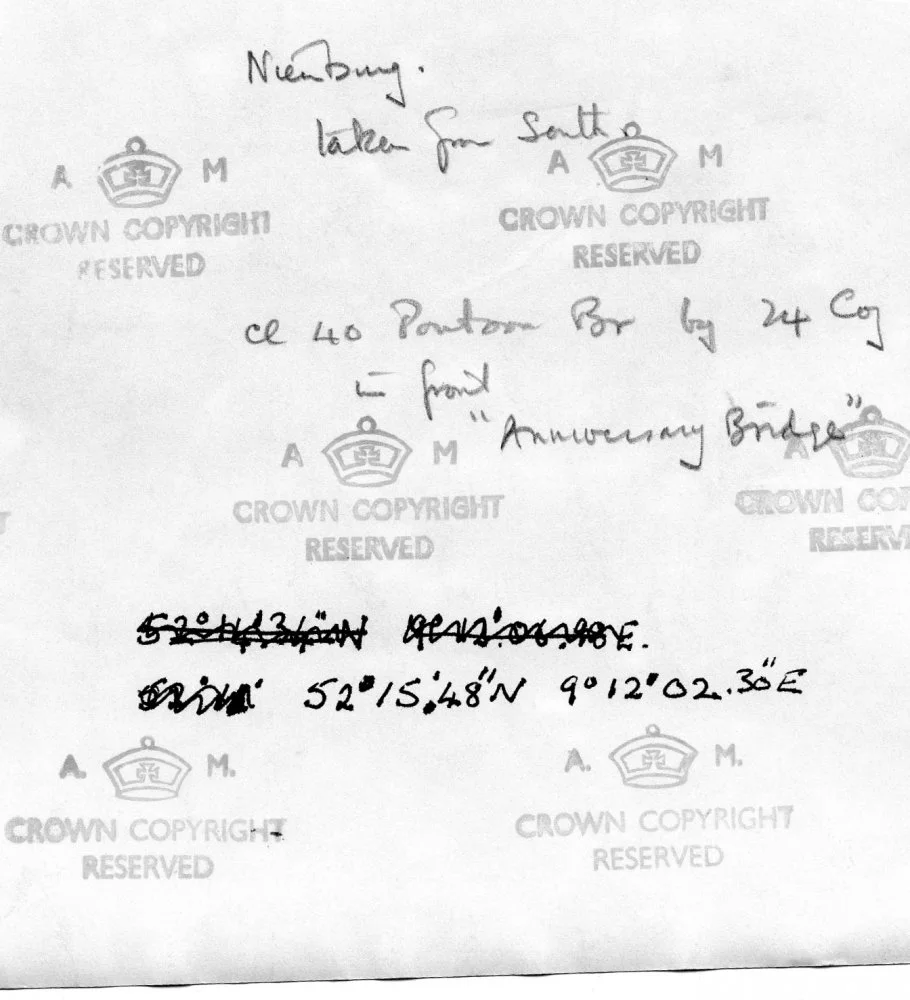 Nienburg.
taken from South.
A M
CROWN COPYRIGHT
RESERVED
A M
CROWN COPYRIGHT
RESERVED
cl 40 Pontoon Br by 24 Coy
in front
"Anniversary Bridge"
A M
CROWN COPYRIGHT
RESERVED
A
CROWN COP
RESERV
T
52°15'.48"N 9°12'02.30"E
A. M.
CROWN COPYRIGHT
RESERVED
A. M.
CROWN COPYRIGHT
RESERVED